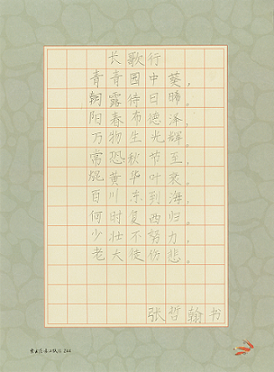 长歌行
青青园中葵。
朝露待日晞。
阳春布德泽。
万物生光辉。
常恐秋节至。
焜黄华叶衰。
百川东到海。
何时复西归。
少壮不努力。
老大徒伤悲。
张哲翰书